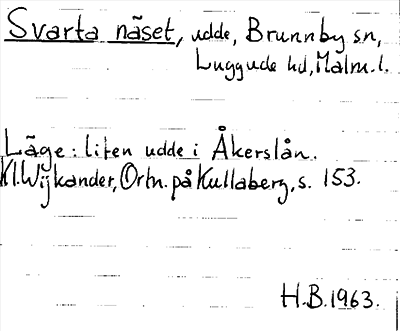 Svarta näset, udde, Brunnby sn,
Luggude hd, Malm. l.
Läge: liten udde i Åkerslån.
Kl. Wijkander, Ortn. på Kullaberg, s. 153.
H.B. 1963.